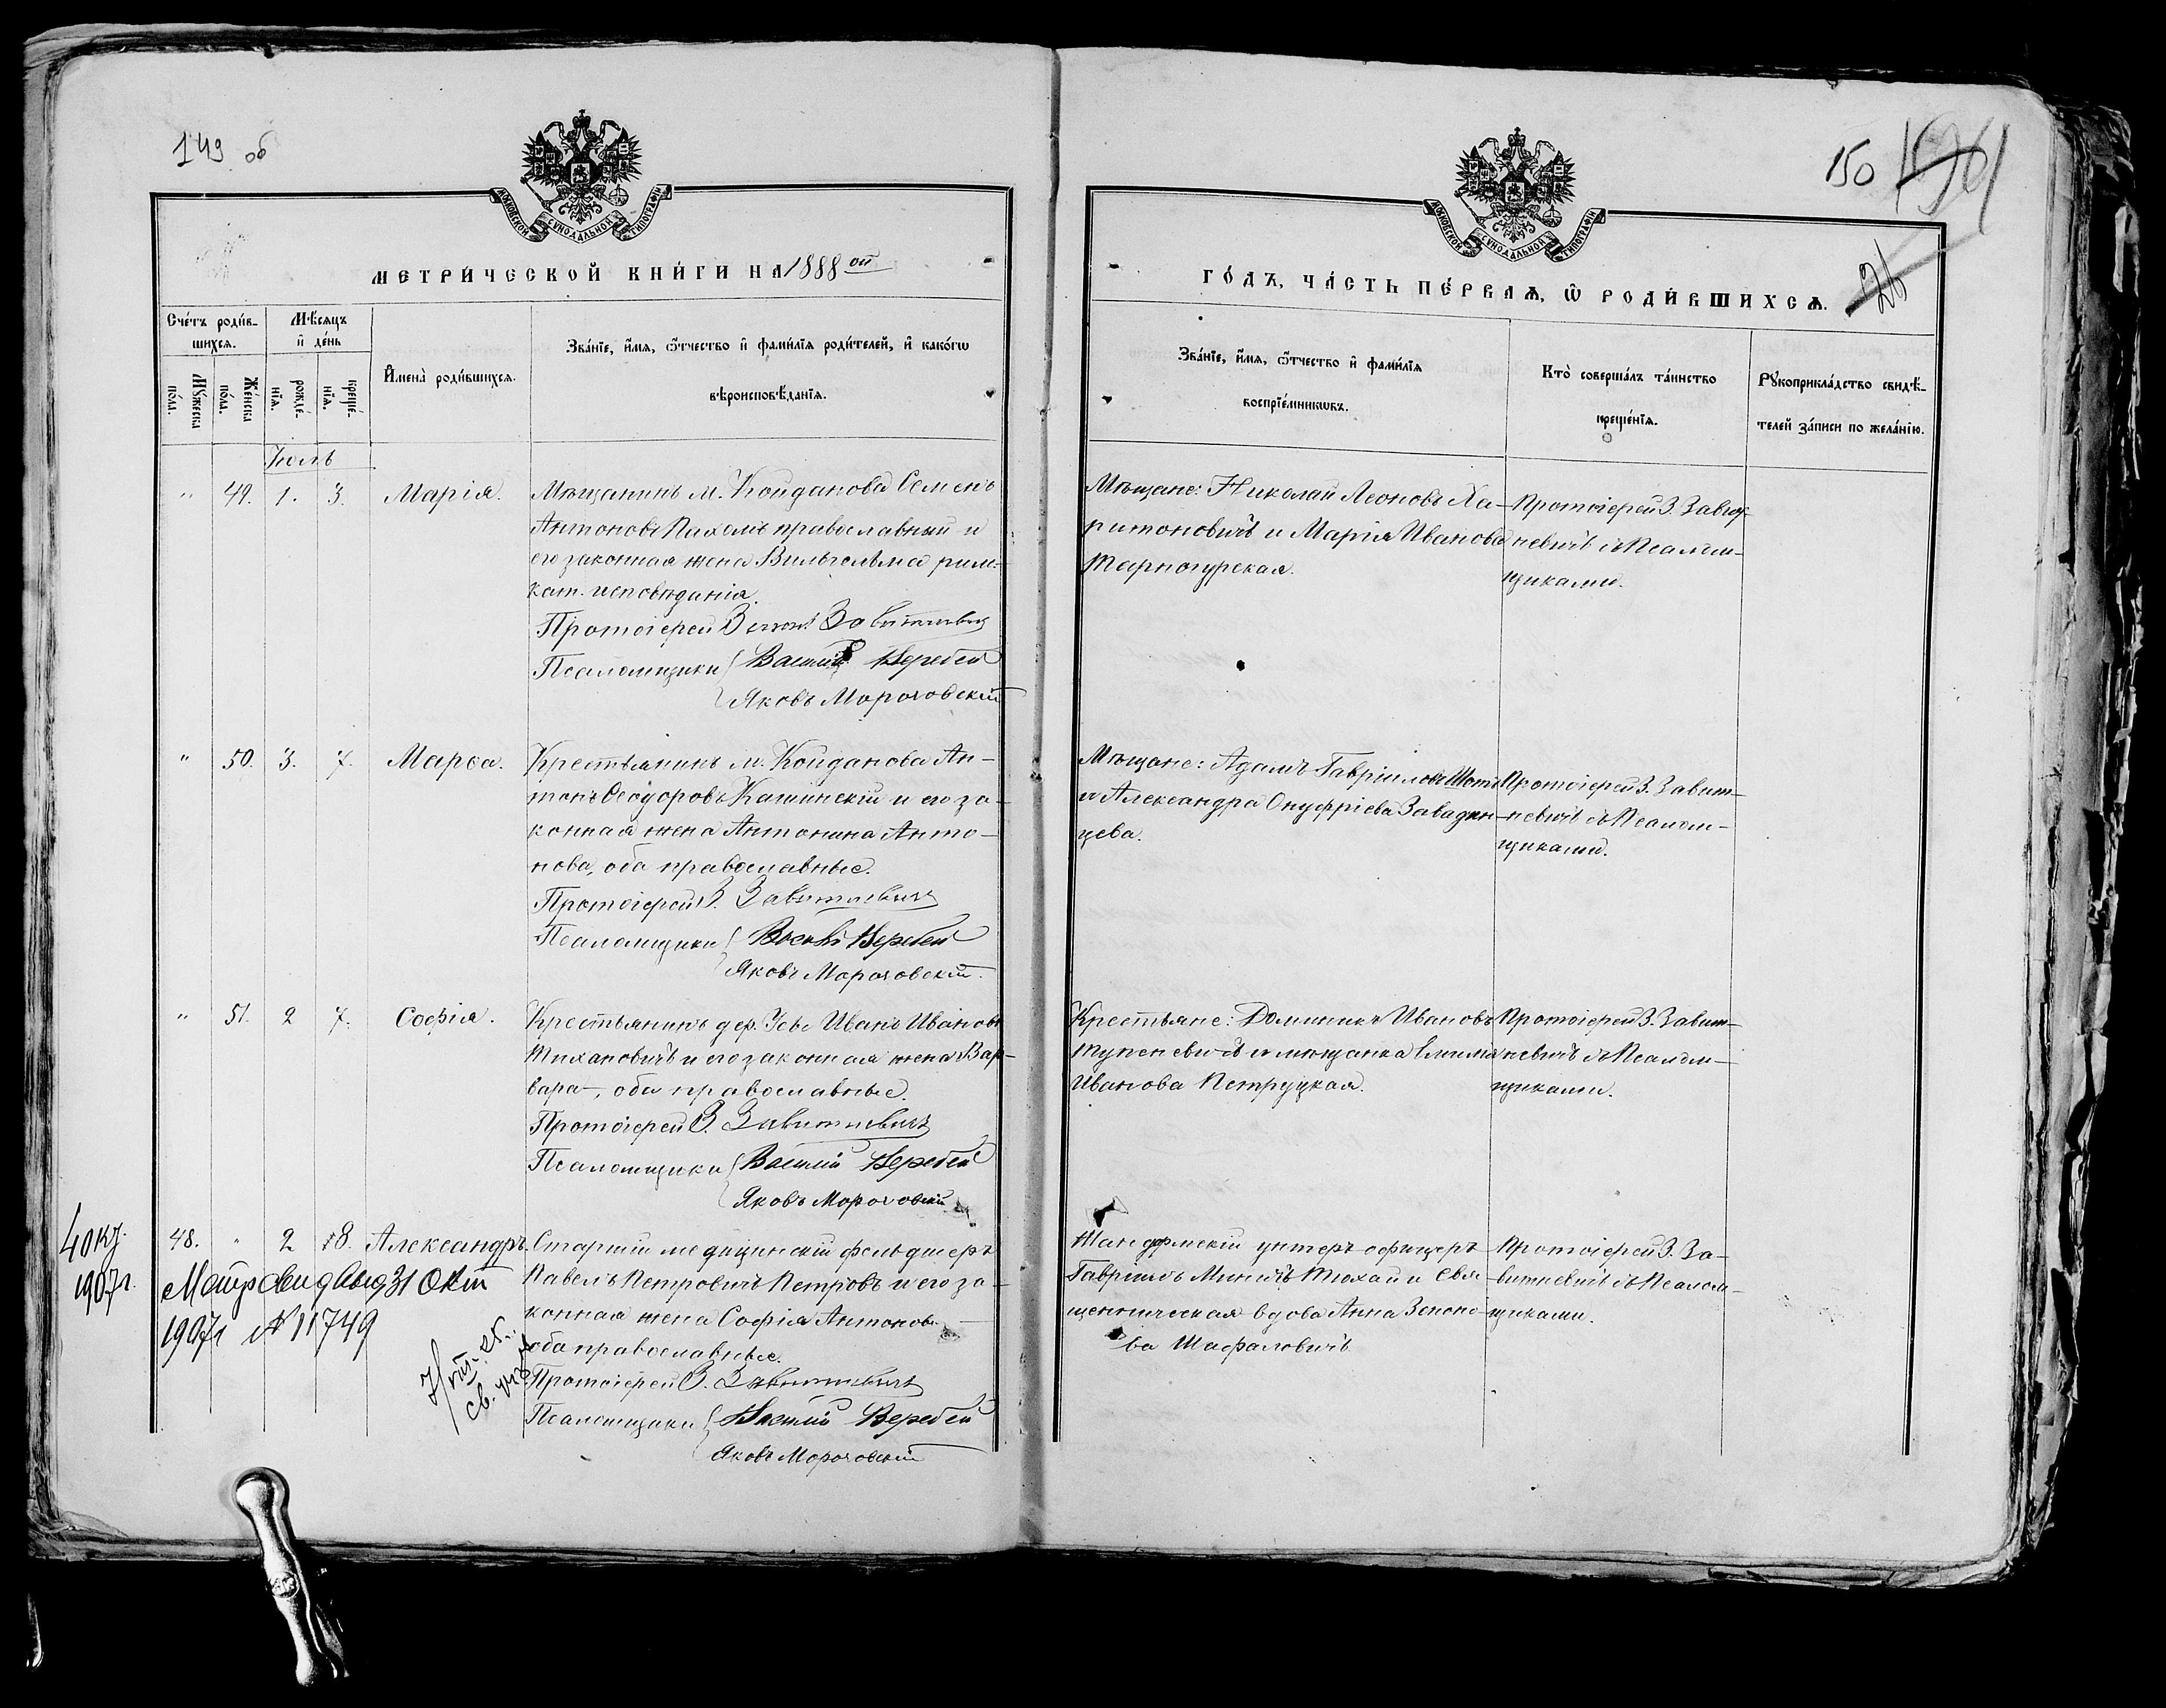 149 об
МОСКОВСКОЙ СѴНОДАЛЬНОЙ ТИПОГРАФІИ
МЕТРИ́ЧЕСКОЙ КНИ́ГИ НА 1888 ой
Сче́тъ роди́в-
шихсѧ.
Мѣ́сѧцъ
и҆ де́нь
Мꙋ́жеска
по́ла.
Же́нска
по́ла.
рожде́-
нїѧ.
креще́-
нїѧ.
И҆мена̀ роди́вшихсѧ.
Зва́нїе, и҆́мѧ, ѻ҆́тчество и҆ фами́лїѧ роди́телей, и҆ како́гѡ
вѣроисповѣ́данїѧ.
Іюль
" 49. 1. 3. Марія.
Мѣщанинъ м. Койданова Семенъ
Антоновъ Пахомъ православный и
его законная жена Вильгельма рим.-
кат. исповѣданія.
Протоіерей Зинонъ Завитневичъ
Псаломщики Василій Веребей
Яковъ Мороховскій
" 50. 3. 7. Марѳа.
Крестьянинъ м. Койданова Ан-
тонъ Ѳеодоровъ Кашинскій и его за-
конная жена Антонина Анто-
нова, оба православные.
Протоіерей З. Завитневичъ
Псаломщики Василій Веребей
Яковъ Мороховскій.
" 51. 2 7. Софія.
Крестьянинъ дер. Усы Иванъ Ивановъ
Тихановичъ и его законная жена Вар-
вара, оба православные.
Протоіерей З. Завитневичъ
Псаломщики Василій Веребей
Яковъ Мороховскій
48. " 2 8. Александръ.
Старшій медицинскій фельдшеръ
Павелъ Петровичъ Петровъ и его за-
конная жена Софія Антонова
оба православные.
Протоіерей З. Завитневичъ
Псаломщики Василій Веребей
Яковъ Мороховскій
1907г.
31 Окт
1907г № 11749
150
МОСКОВСКОЙ СѴНОДАЛЬНОЙ ТИПОГРАФІИ
ГО́ДЪ, ЧА́СТЬ ПЕ́РВАѦ, Ѽ РОДИ́ВШИХСѦ.
Зва́нїе, и҆́мѧ, ѻ҆́тчество и҆ фами́лїѧ
воспрїе́мникѡвъ.
Кто̀ соверша́лъ та́инство
креще́нїѧ.
Рꙋкоприкла́дство свидѣ́-
телей за́писи по жела́нїю.
Мѣщане: Николай Леоновъ Ха-
ритоновичъ и Марія Иванова
Тарногурская.
Протоіерей З. Завит-
невичъ съ Псалом-
щиками.
Мѣщане: Адамъ Гавріиловъ
и Александра Онуфріева Завадин-
цева.
Протоіерей З. Завит-
невичъ съ Псалом-
щиками.
Крестьяне: Доминикъ Ивановъ
Тупеневичъ и мѣщанка
Иванова Петруцкая.
Протоіерей З. Завит-
невичъ съ Псалом-
щиками.
Жандармскій унтеръ офицеръ
Гавріилъ Миничъ Тюхай и Свя-
щенническая вдова Анна Зеноно-
ва Шафаловичъ
Протоіерей З. За-
витневичъ съ Псалом-
щиками.